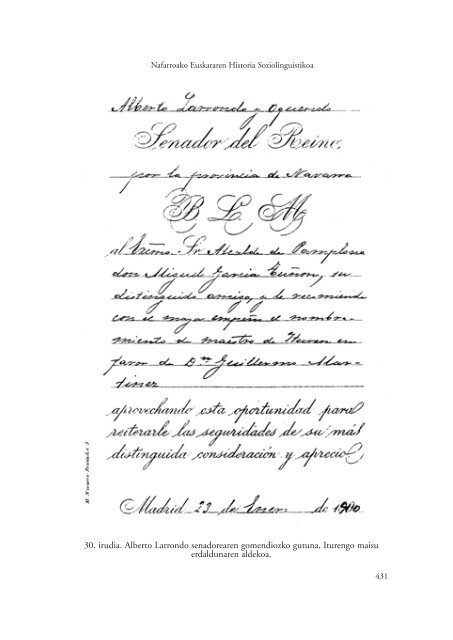 Nafarroako Euskararen Historia Soziolinguistikoa
Alberto Larrondo y Oquendo
Senador del Reino,
por la provincia de Navarra
B L M
al Excmo. Sr. Alcalde de Pamplona
don Miguel García Tuñon, su
distinguido amigo, y le recomienda
con el mayor empeño el nombra-
miento de maestro de Ituren en
favor de Dn Guillermo Mar-
tinez
aprovechando esta oportunidad para
reiterarle las seguridades de su más
distinguida consideración y aprecio,
Madrid 23 de Enero de 1900
30. irudia. Alberto Larrondo senadorearen gomendiozko gutuna, Iturengo maisu
erdaldunaren aldekoa.
431